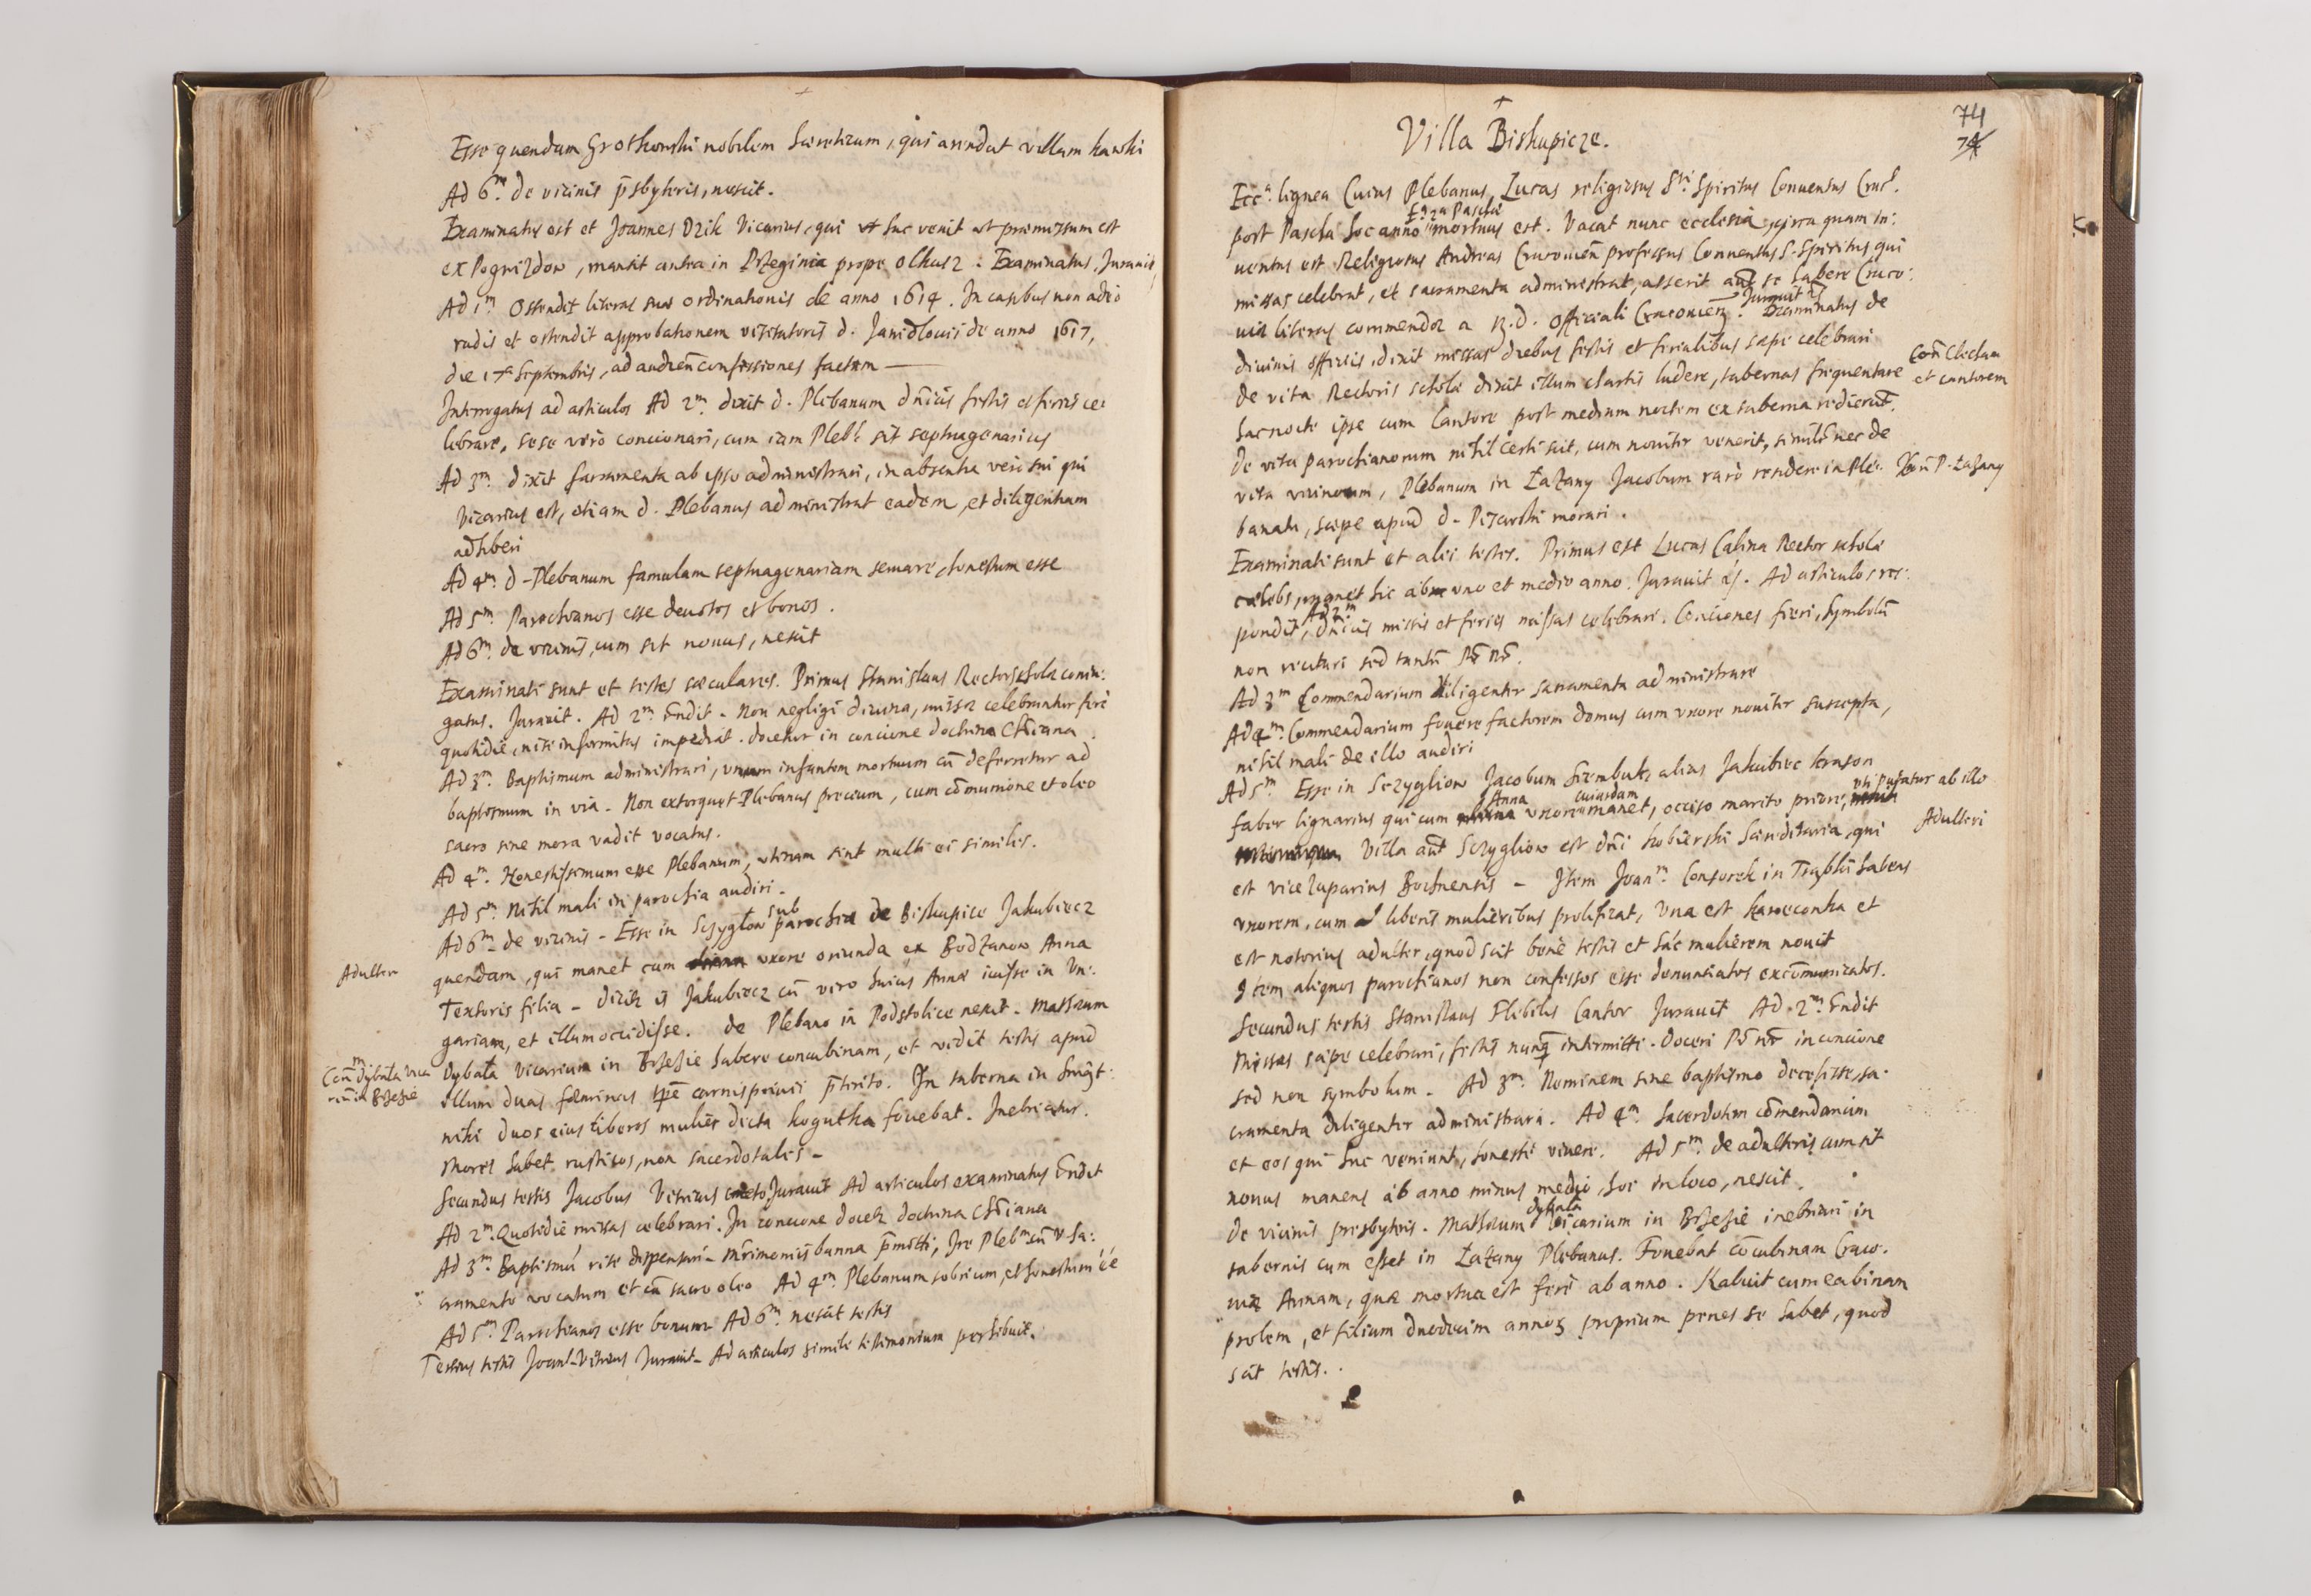 Esse quendam Grothowski nobilem hæreticum, qui arendat villam kawki
Ad 6m. de vicinis p̄sbyteris, nescit.
Examinatus est et Joannes Dzik Vicarius, qui huc venit ut præmissum est
ex Pogwizdow, mansit antea in Przeginia prope Olkusz. Examinatus. Juravit,
Ad 1m. Ostendit literas suæ ordinationis de anno 1614. In casibus non adeo
rudis et ostendit approbationem visitatoris d. Janidlovii de anno 1617,
die 17a Septembris, ad audien̄ confessiones factam —
Interrogatus ad articulos Ad 2m. dixit d. Plebanum dn̄icis festis et feriis ce:
lebrare, sese verò concionari, cum iam Plebs sit septuagenarius
Ad 3m. dixit sacramenta ab ipso administrari, in absentia verò sui qui
Vicarius est, etiam d. Plebanus administrat eadem, et diligentiam
adhiberi
Ad 4m. d. Plebanum famulam septuagenariam servare, honestum esse
Ad 5m. Parochianos esse devotos et bonos.
Ad 6m. de vicinis, cum sit novus, nescit
Examinati sunt et testes sæculares. Primus Stanislaus Rector scholæ coniu:
gatus. Juravit. Ad 2m. r̄ndit. Non negligi divina, missæ celebrantur ferè
quotidie, nisi infirmitas impediat. docetur in concione doctrina Ch̄iana.
Ad 3m. Baptismum administrari, unum infantem mortuum cū deferretur ad
baptismum in via. Non extorquet Plebanus precium, cum cōmunione et oleo
sacro sine mora vadit vocatus.
Ad 4m. Honestissimum esse Plebanum, utinam sint multi ei similes.
Ad 5m. Nihil mali in parochia audiri.
sub
Ad 6m. de vicinis. Esse in Sczyglow parochia de Biskupice Jakubiecz
Adulter
quendam, qui manet cum uxore oriunda ex Bodzanow Anna
Textoris filia. dicit is Jakubiecz cū viro huius Annæ ivisse in Un:
gariam, et illum occidisse. de Plebano in Podstolice nescit. Mathæum
Con̄ Dybała Vica
rium in Brzezie
Dybała Vicarium in Brzezie habere concubinam, et vidit testis apud
illum duas fæminas tp̄e carnisprivii p̄terito. In taberna in Smigt:
niki duos eius liberos mulier dicta kogutka fovebat. Inebriatur.
Mores habet rusticos, non sacerdotales.
Secundus testis Jacobus Vitricus Juravit Ad articulos examinatus r̄ndit
Ad 2m. Quotidie missas celebrari. In concione docetur doctrina Ch̄iana
Ad 3m. Baptismū rite dispensari. Mr̄imoniis banna p̄mitti, Ire Plebm. cū V. Sa:
cramento vocatum et cū sacro oleo Ad 4m. Plebanum sobrium, et honestum ēē
Ad 5m. Parochianos esse bonum Ad 6m. nescit testis
Tertius testis Joan̄es Vitricus Juravit. Ad articulos simile testimonium perhibuit.
74
74
+
Villa Biskupicze.
Ecca. lignea Cuius Plebanus Lucas religiosus Sti. Spiritus Conventus Crac.
Fr̄ 2a Paschæ
post Pascha hoc anno mortuus est. Vacat nunc ecclesia, circa quam in:
ventus est Religiosus Andreas Cracovien̄ professus Conventus S. Spiritus, qui
missas celebrat, et sacramenta administrat, asserit aūt se habere Craco:
Juravit
viæ literas commendæ a R. d. Officiali Cracovien̄. Examinatus de
divinis officiis, dixit missas diebus festis et ferialibus sæpe celebrari
de vita Rectoris scholæ dixit illum chartis ludere, tabernas frequentare
Con̄ Clecham
et cantorem
hac nocte ipse cum Cantore post mediam noctem ex taberna redierūt.
de vita parochianorum nihil certi scit, cum noviter venerit, similr̄ nec de
vita vicinorum, Plebanum in Łazany Jacobum rarò residere in Ple:
Con̄ P. Łazany
banatu, sæpe apud d. Pizarski morari.
Examinati sunt et alii testes. Primus est Lucas Calina Rector scholæ
cælebs, manet hic ab uno et medio anno. Juravit. Ad articulos res:
Ad 2m
pondit, dn̄icis missis et feriis missas celebrari. Conciones fieri, Symbolū
non recitari sed tantū Pr̄ nr̄.
Ad 3m Commendarium diligenter sacramenta administrare
Ad 4m. Commendarium fovere factorem domus cum uxore noviter suscepta,
nihil mali de illo audiri
Ad 5m Esse in Sczyglion Jacobum alias Jakubiec krason
Anna cuiusdam uti putatur ab illo
faber lignarius qui cum uxore manet, occiso marito priore,
Adulteri
Villa aūt Sczyglion est dn̄i kobierski hæreditaria, qui
est vicezuparius Bochnensis. Item Joanm. Consorek in Trąbki habens
uxorem, cum liberis mulieribus prolificat, Una est karwconka et
est notorius adulter, quod scit bene testis et hāc mulierem novit
Item aliquos parochianos non confessos esse denuntiatos excōmunicatos.
Secundus testis Stanislaus Flebilis Cantor Juravit Ad. 2m. r̄ndit
Missas sæpe celebrari, festis nunq̄ intermitti. Doceri Pr̄ nr̄ in concione
sed non symbolum. Ad 3m. Neminem sine baptismo decessisse, sa:
cramenta diligenter administrari. Ad 4m. Sacerdotem cōmendarium
et eos qui huc veniunt, honestè vivere. Ad 5m. de adulteris cum sit
novus manens ab anno minus medio, hoc in loco, nescit.
dybała
De vicinis presbyteris. Mathæum vicarium in Brzezie inebriari in
tabernis cum esset in Łazany Plebanus. Fovebat cōcubinam Craco.
viæ Annam, quæ mortua est ferè ab anno. Habuit cum ea binam
prolem, et filium duodecim annorum proprium penes se habet, quod
scit testis.